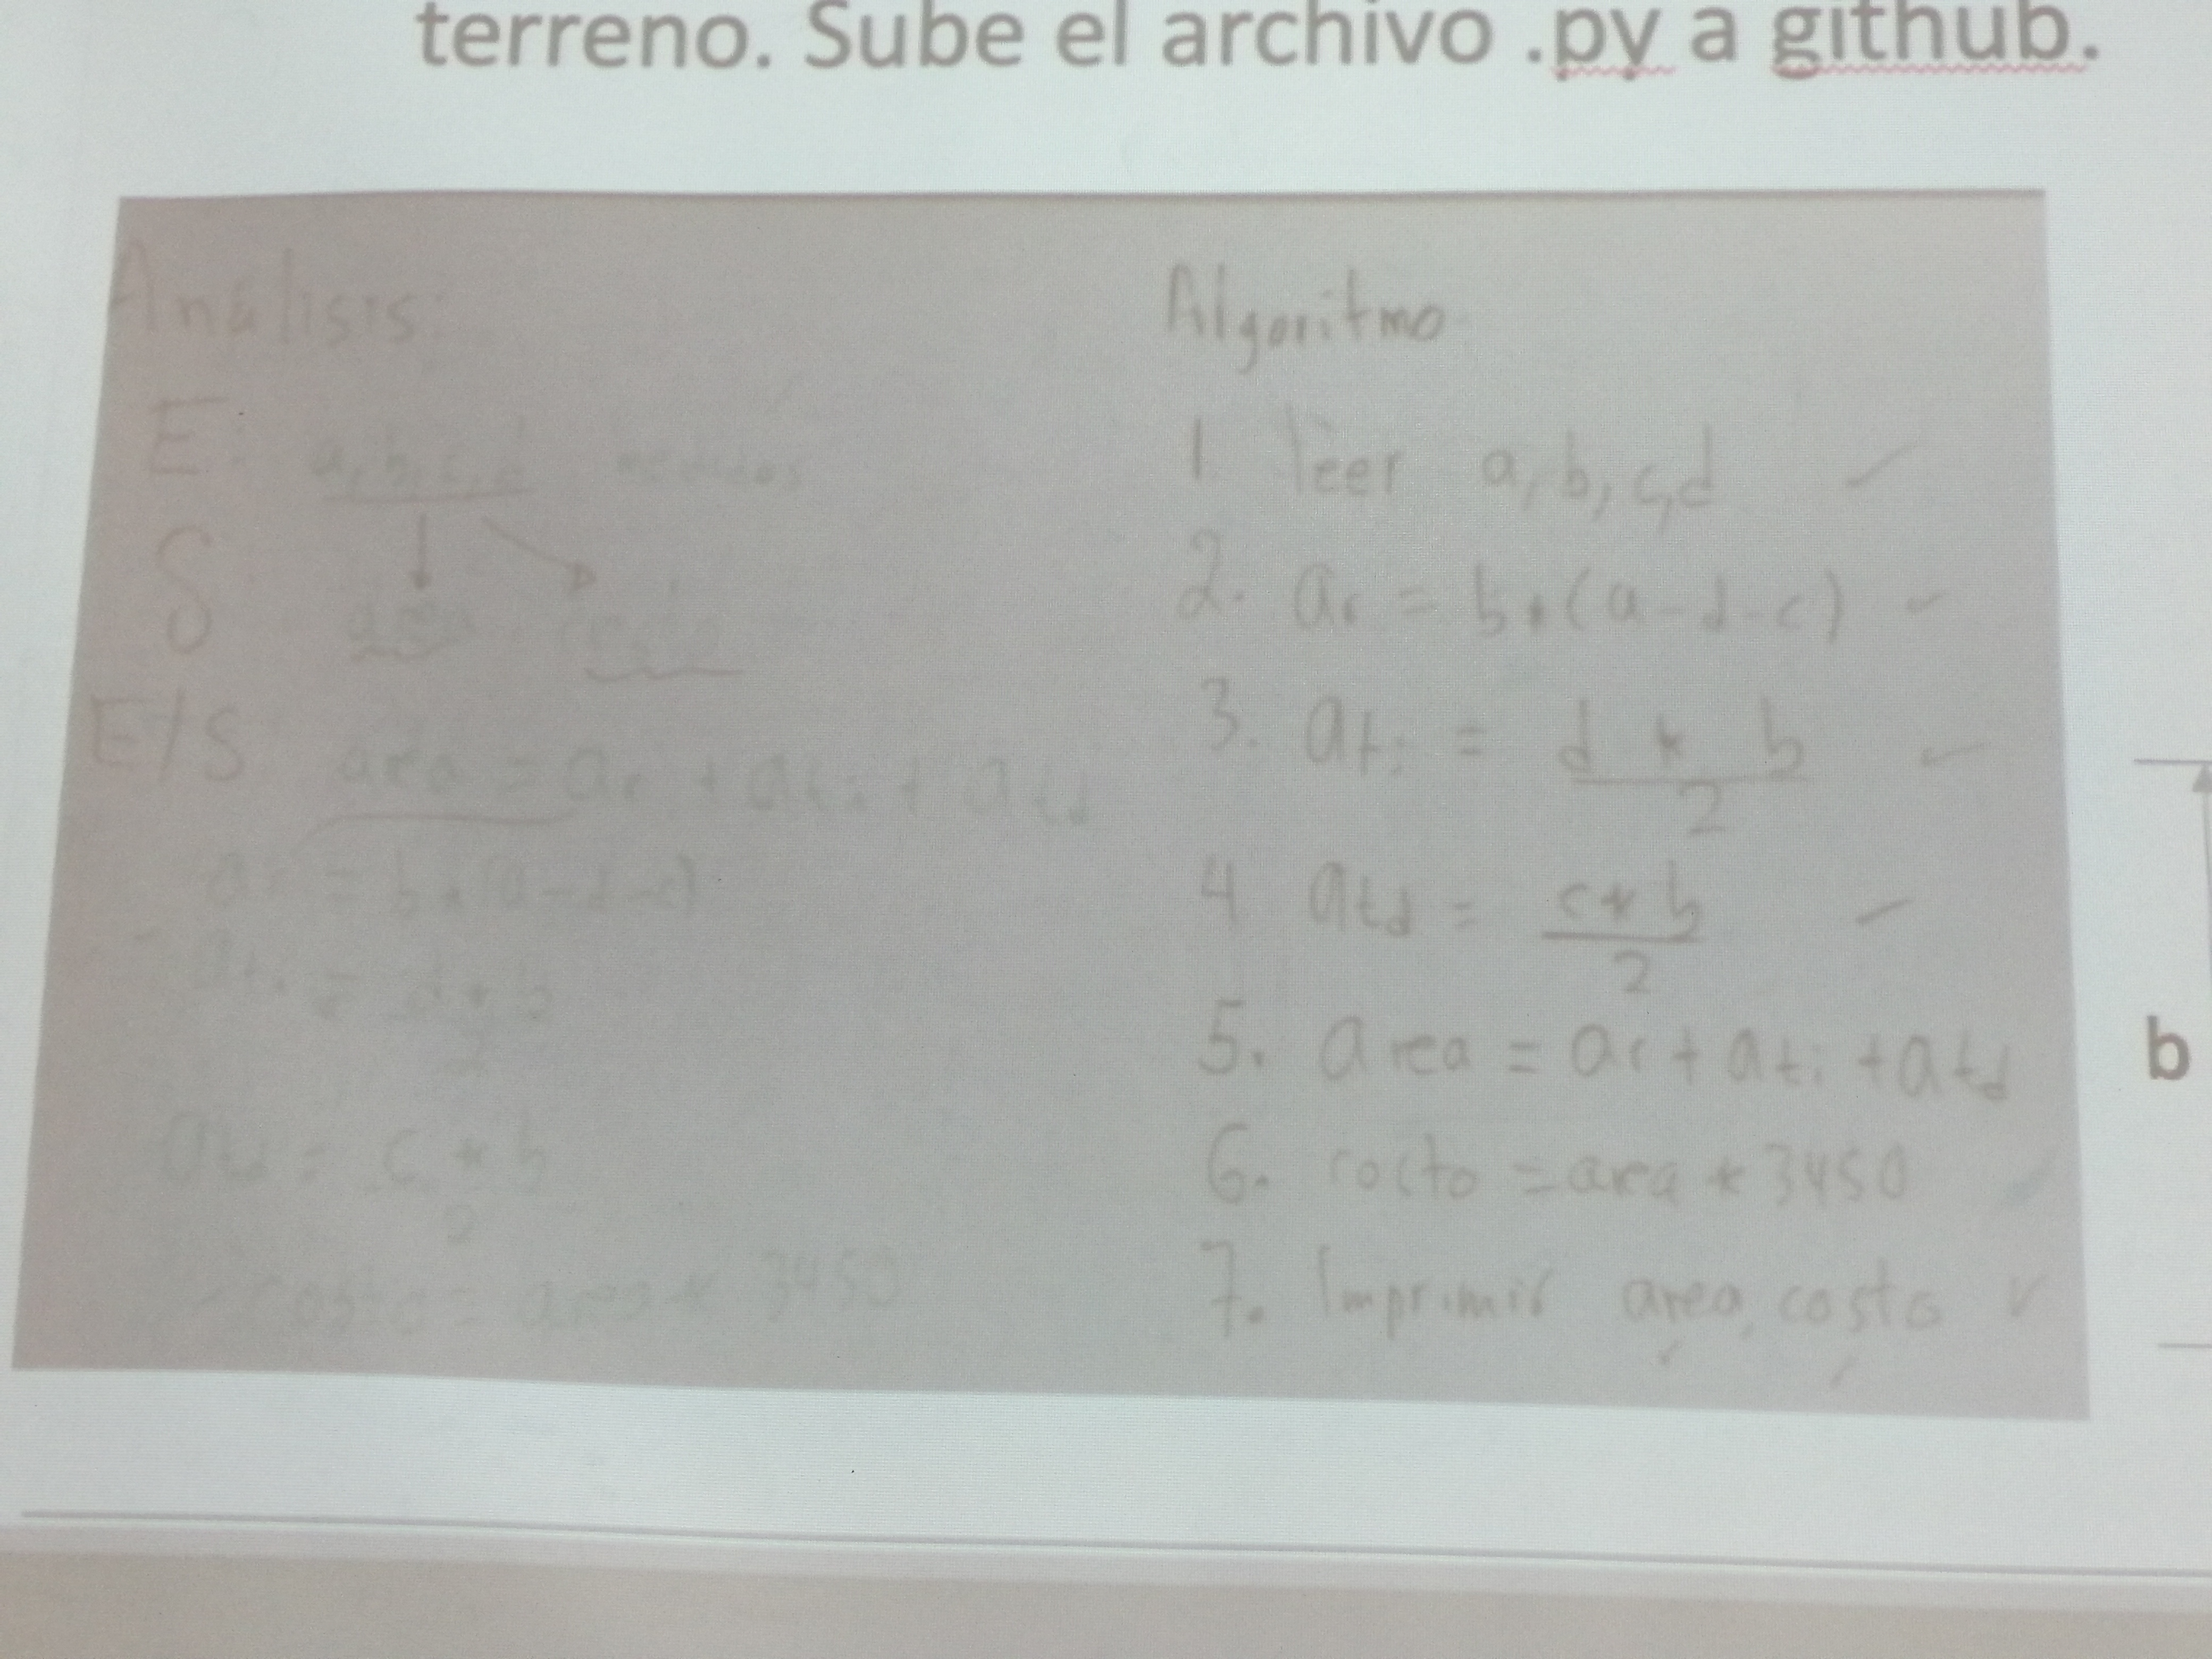 terreno. Sube el archivo .py a github.
Análisis:
E: a, b, c, d medidas
S area costo
E/S area = ar + ati + atd
ar = b * (a-d-c)
ati = d * b
2
atd = c * b
2
- costo = area * 3450
Algoritmo
1 leer a, b, c, d
2. ar = b * (a-d-c)
3. ati = d * b
2
4 atd = c * b
2
5. area = ar + ati + atd
6. costo = area * 3450
7. Imprimir area, costo
b